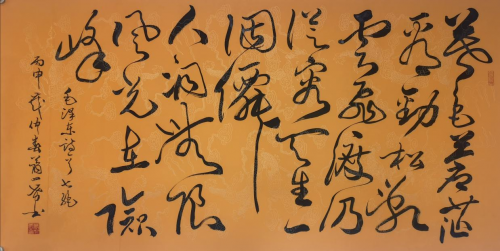 暮色苍茫
看劲松乱
云飞渡仍
从容天生一
個僊
人洞无限
风光在险
峰
毛泽东诗七绝
丙申仲春